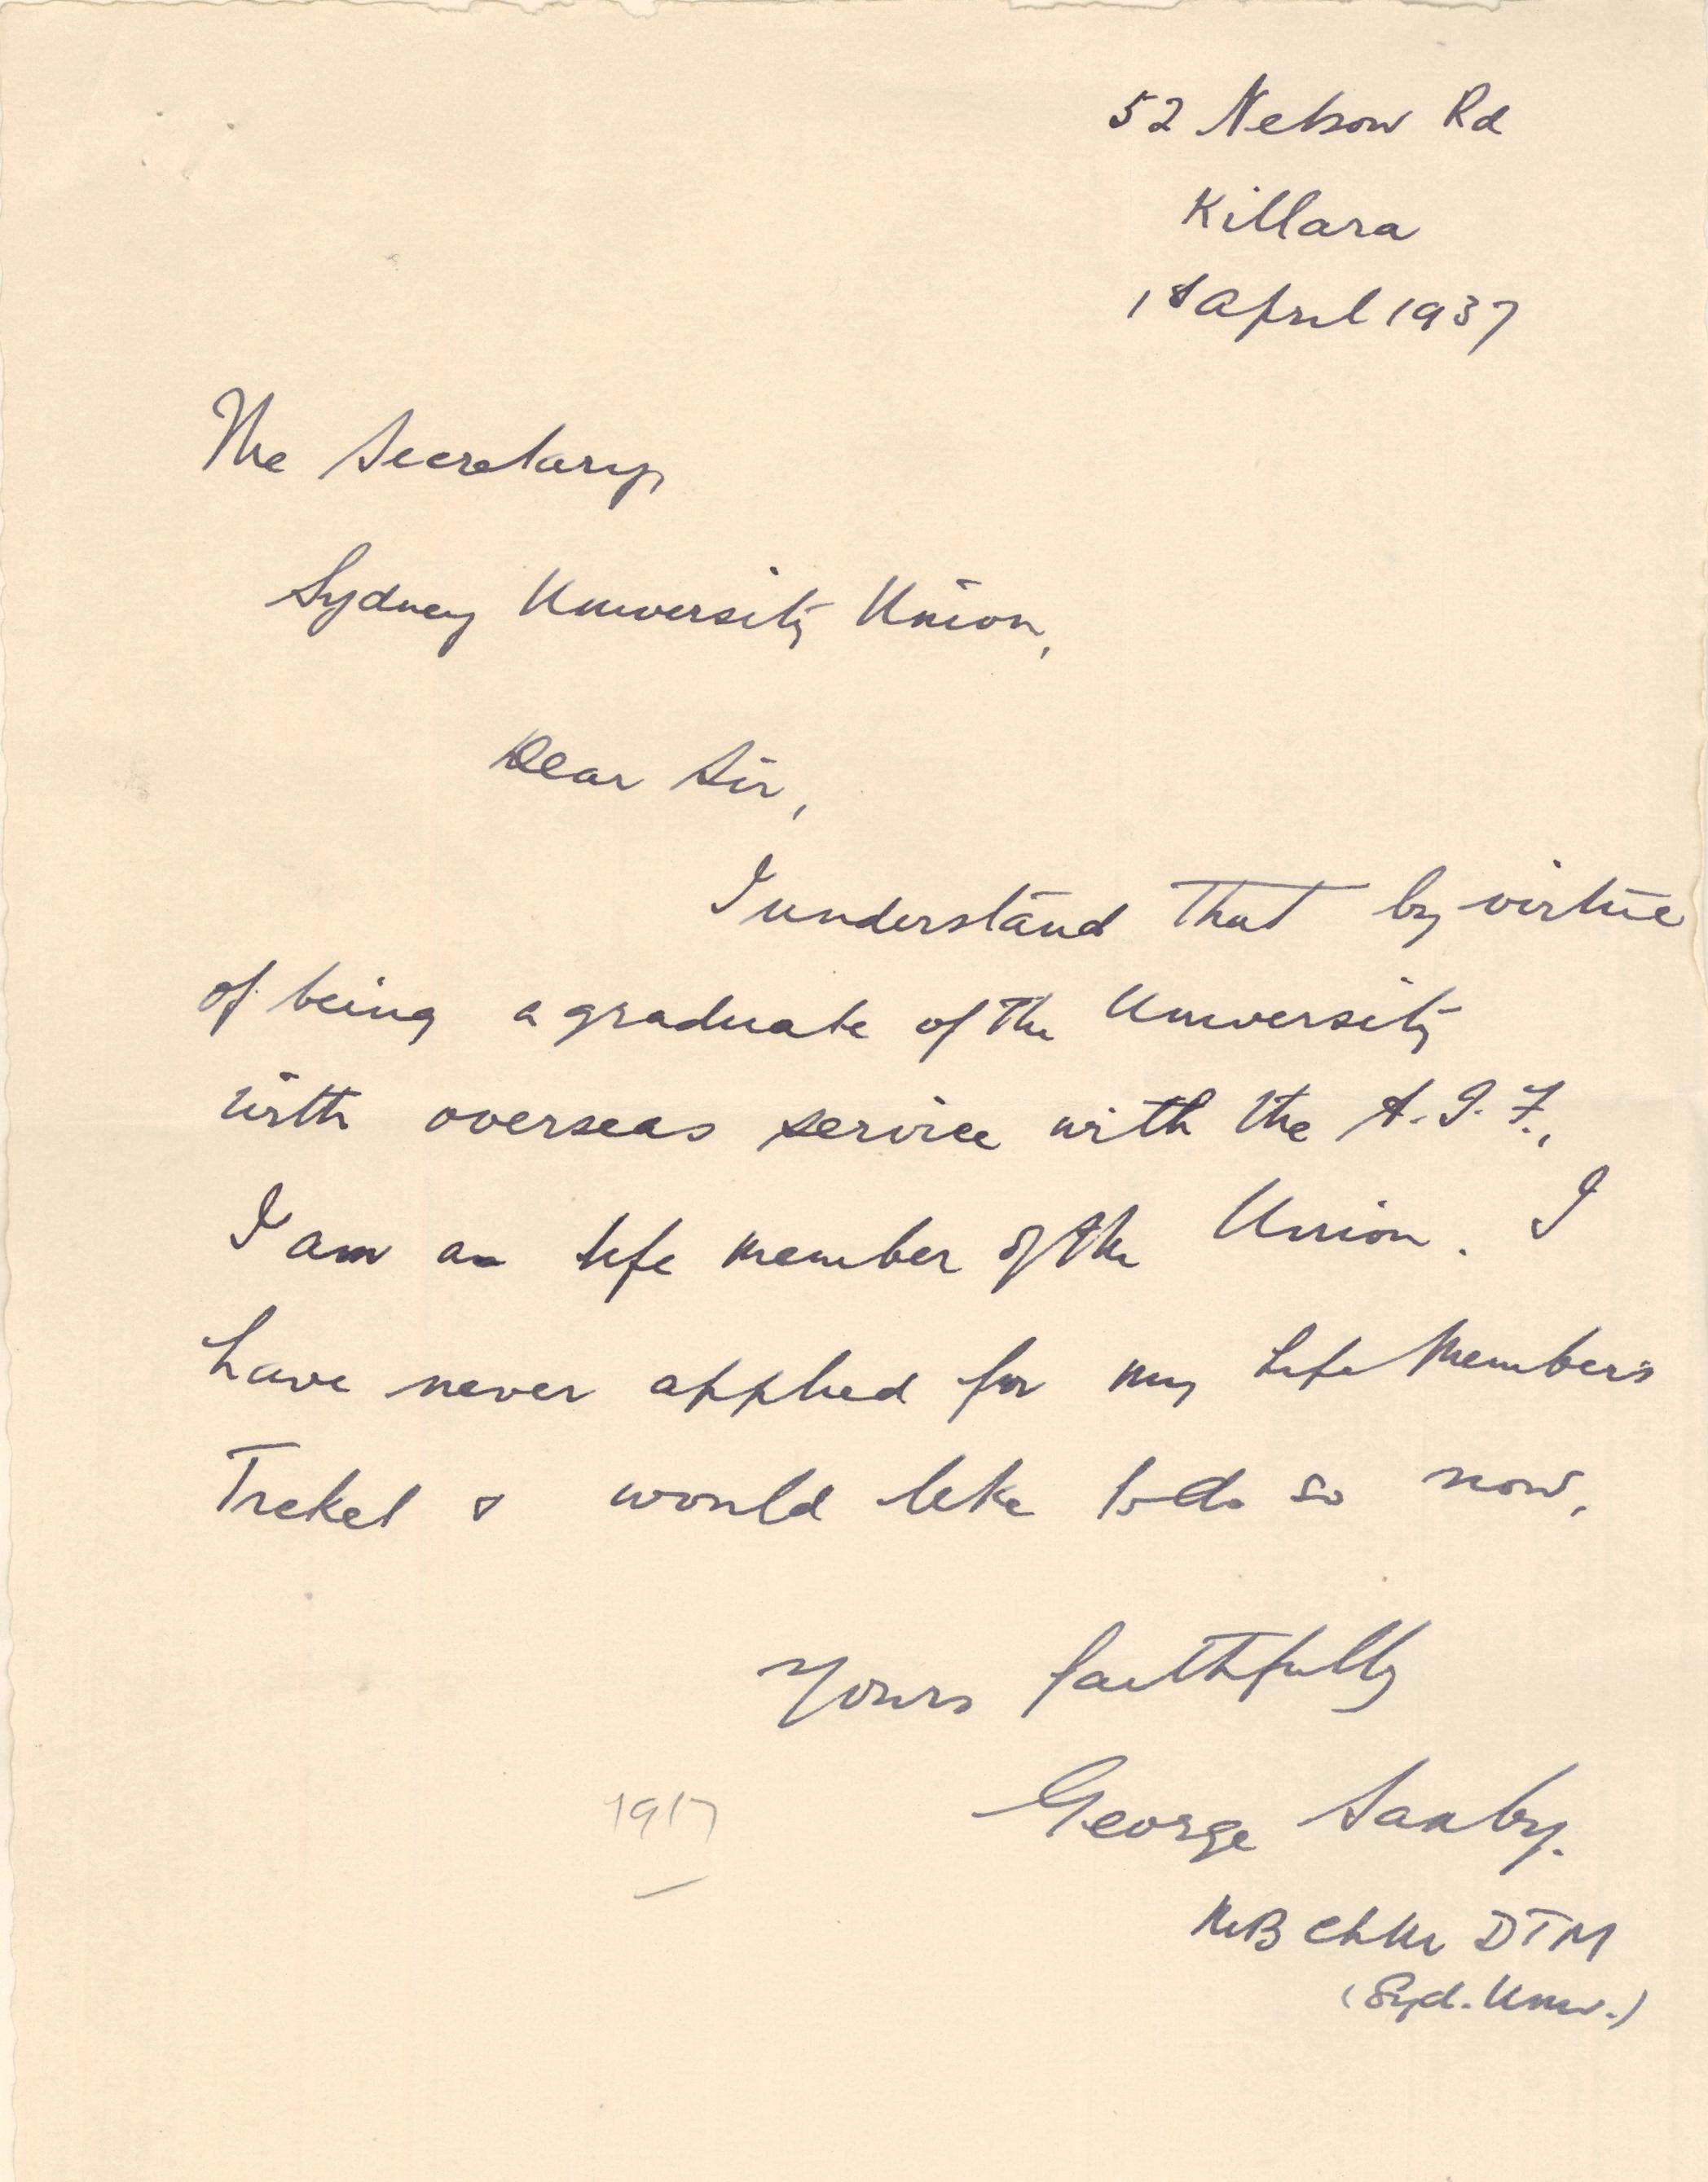 52 Nelson Rd
Killara
1st April 1937
The Secretary,
Sydney University Union,
Dear Sir,
I understand that by virtue
of being a graduate of the University
with overseas service with the A.I.F.,
I am a life member of the Union. I
have never applied for my Life Members
Ticket & would like to do so now.
Yours faithfully
George Saxby.
1917
MB ChM DTM
(Syd. Univ.)